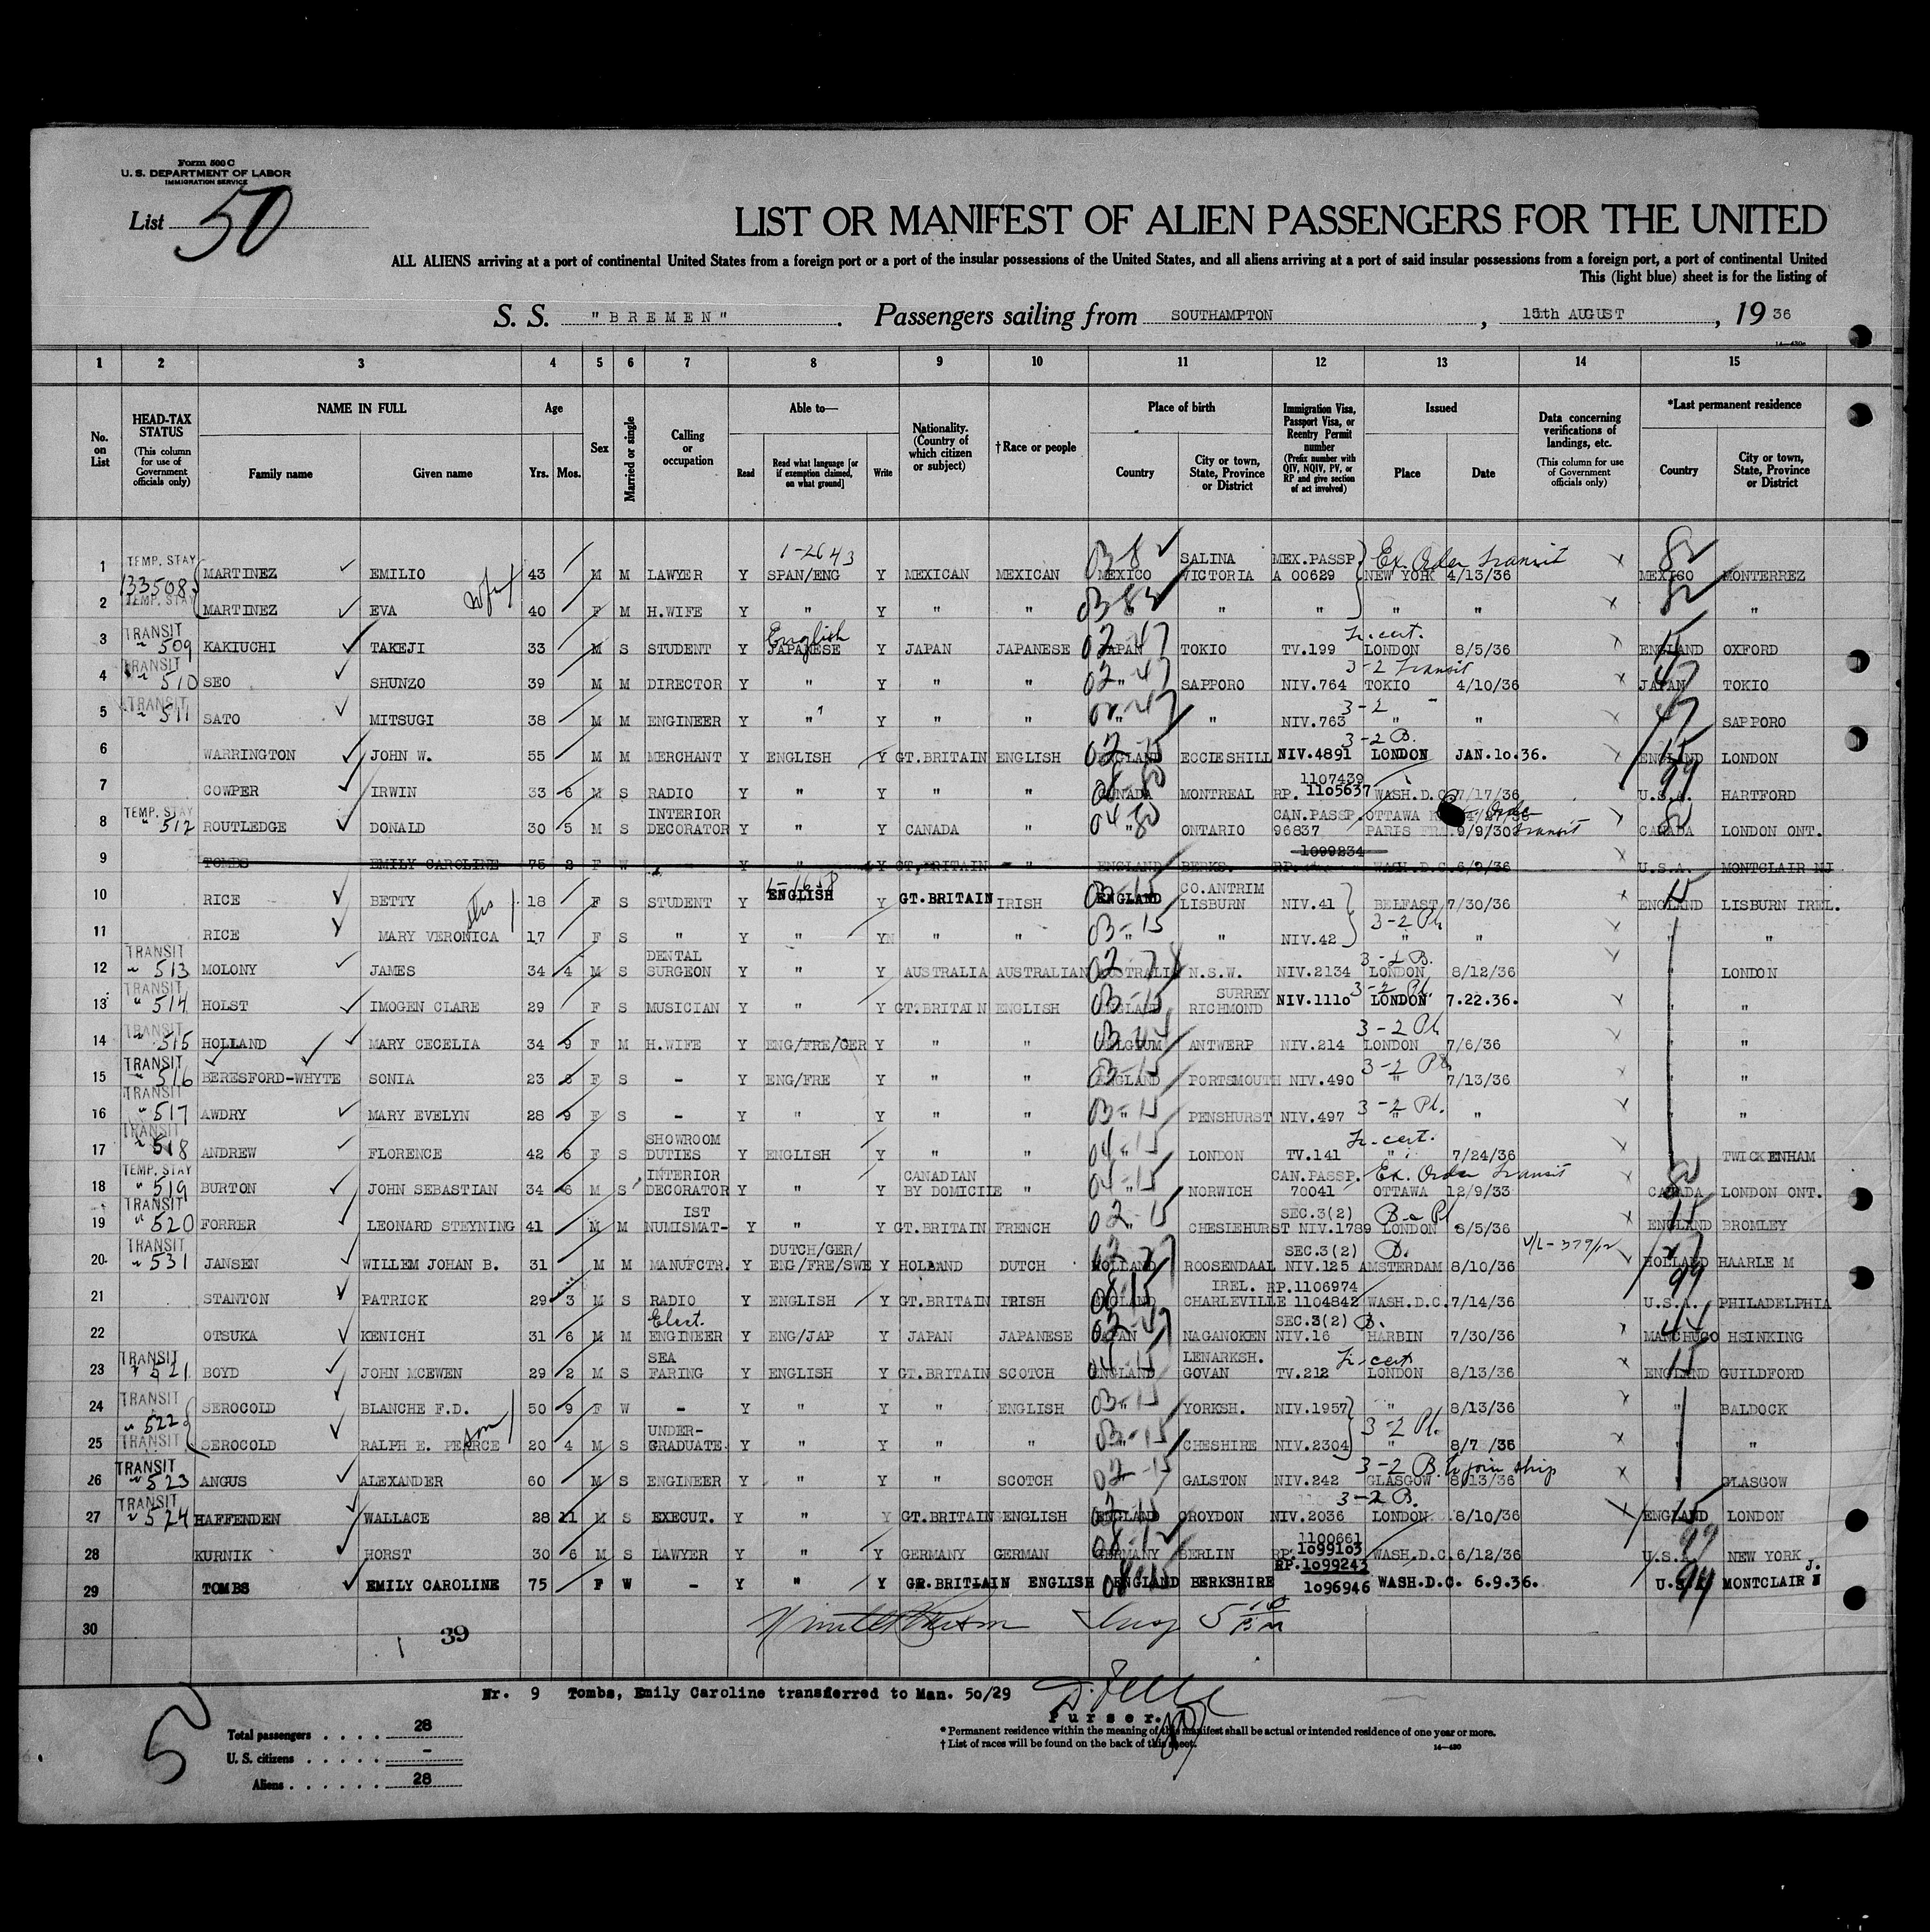 Form 500 C
U. S. DEPARTMENT OF LABOR
IMMIGRATION SERVICE
List 50
LIST OR MANIFEST OF ALIEN PASSENGERS FOR THE UNITED
ALL ALIENS arriving at a port of continental United States from a foreign port or a port of the insular possessions of the United States, and all aliens arriving at a port of said insular possessions from a foreign port, a port of continental United
This (light blue) sheet is for the listing of
S. S. "BREMEN". Passengers sailing from SOUTHAMPTON, 15th AUGUST, 19 36
1 2 3 4 5 6 7 8 9 10 11 12 13 14 15
No. on List
HEAD-TAX STATUS (This column for use of Government officials only)
NAME IN FULL Family name Given name
Age Yrs. Mos.
Sex
Married or single
Calling or occupation
Able to— Read Read what language [or if exemption claimed, on what ground] Write
Nationality. (Country of which citizen or subject)
†Race or people
Place of birth Country City or town, State, Province or District
Immigration Visa, Passport Visa, or Reentry Permit number (Prefix number with QIV, NQIV, PV, or RP and give section of act involved)
Issued Place Date
Data concerning verifications of landings, etc. (This column for use of Government officials only)
*Last permanent residence Country City or town, State, Province or District
1 TEMP. STAY 133508 MARTINEZ EMILIO 43 M M LAWYER Y SPAN/ENG 1-2643 Y MEXICAN MEXICAN MEXICO 03-82 SALINA VICTORIA MEX.PASSP. A 00629 NEW YORK 4/13/36 Ex. Order Transit X MEXICO 82 MONTERREZ
2 TEMP. STAY MARTINEZ EVA wife 40 F M H.WIFE Y " Y " " " 03-82 " " " " X " 82 "
3 TRANSIT " 509 KAKIUCHI TAKEJI 33 M S STUDENT Y English JAPANESE Y JAPAN JAPANESE JAPAN 02-47 TOKIO TV.199 LONDON 8/5/36 Tr. cert. X ENGLAND 15 OXFORD
4 TRANSIT " 510 SEO SHUNZO 39 M M DIRECTOR Y " Y " " " 02-47 SAPPORO NIV.764 TOKIO 4/10/36 3-2 Transit X JAPAN 47 TOKIO
5 TRANSIT " 511 SATO MITSUGI 38 M M ENGINEER Y " Y " " " 02-47 " NIV.763 " " 3-2 " X " 47 SAPPORO
6 WARRINGTON JOHN W. 55 M M MERCHANT Y ENGLISH Y GT.BRITAIN ENGLISH ENGLAND 02-15 ECCLESHILL NIV.4891 LONDON JAN.10.36. 3-2 B. X ENGLAND 15 LONDON
7 COWPER IRWIN 33 6 M S RADIO Y " Y " " CANADA MONTREAL 1107439 RP. 1105637 WASH.D.C. 7/17/36 U.S.A. 99 HARTFORD
8 TEMP. STAY " 512 ROUTLEDGE DONALD 30 5 M S INTERIOR DECORATOR Y " Y CANADA " " 04-80 ONTARIO CAN.PASSP. 96837 OTTAWA PARIS 9/9/30 Order Transit X CANADA 80 LONDON ONT.
9 TOMBS EMILY CAROLINE 75 2 F W - Y " Y GT.BRITAIN " ENGLAND BERKS. 1099234 RP. WASH.D.C. 6/9/36 U.S.A. MONTCLAIR NJ
10 RICE BETTY 18 F S STUDENT Y ENGLISH Y GT.BRITAIN IRISH ENGLAND 03-15 CO.ANTRIM LISBURN NIV.41 BELFAST 7/30/36 X ENGLAND 15 LISBURN IREL.
11 RICE MARY VERONICA 17 F S " Y " Y " " " 03-15 " NIV.42 " " 3-2 Pl. X " "
12 TRANSIT " 513 MOLONY JAMES 34 4 M S DENTAL SURGEON Y " Y AUSTRALIA AUSTRALIAN AUSTRALIA N.S.W. NIV.2134 LONDON 8/12/36 3-2 B. X " LONDON
13 TRANSIT " 514 HOLST IMOGEN CLARE 29 F S MUSICIAN Y " Y GT.BRITAIN ENGLISH ENGLAND 03-15 SURREY RICHMOND NIV.1110 LONDON 7.22.36. 3-2 Pl. X " "
14 TRANSIT " 515 HOLLAND MARY CECELIA 34 9 F M H.WIFE Y ENG/FRE/GER Y " " BELGIUM ANTWERP NIV.214 LONDON 7/6/36 3-2 Pl. X " "
15 TRANSIT " 516 BERESFORD-WHYTE SONIA 23 8 F S - Y ENG/FRE Y " " ENGLAND 03-15 PORTSMOUTH NIV.490 " 7/13/36 3-2 Pl. X " "
16 TRANSIT " 517 AWDRY MARY EVELYN 28 9 F S - Y " Y " " " 03-15 PENSHURST NIV.497 " " 3-2 Pl. X " "
17 TRANSIT " 518 ANDREW FLORENCE 42 6 F S SHOWROOM DUTIES Y ENGLISH Y " " " 04-15 LONDON TV.141 " 7/24/36 Tr. cert. X " TWICKENHAM
18 TEMP. STAY " 519 BURTON JOHN SEBASTIAN 34 6 M S INTERIOR DECORATOR Y " Y CANADIAN BY DOMICILE " " 04-15 NORWICH CAN.PASSP. 70041 OTTAWA 12/9/33 Ex. Order Transit X CANADA 80 LONDON ONT.
19 TRANSIT " 520 FORRER LEONARD STEYNING 41 M M NUMISMAT-IST Y " Y GT.BRITAIN FRENCH " 02-15 CHESLEHURST SEC.3(2) NIV.1789 LONDON 8/5/36 X ENGLAND 15 BROMLEY
20 TRANSIT " 531 JANSEN WILLEM JOHAN B. 31 M M MANUFCTR. Y DUTCH/GER/ENG/FRE/SWE Y HOLLAND DUTCH HOLLAND ROOSENDAAL SEC.3(2) NIV.125 AMSTERDAM 8/10/36 B. HOLLAND HAARLE M
21 STANTON PATRICK 29 3 M S RADIO Y ENGLISH Y GT.BRITAIN IRISH ENGLAND 08-15 IREL. CHARLEVILLE RP.1106974 1104842 WASH.D.C. 7/14/36 U.S.A. 99 PHILADELPHIA
22 OTSUKA KENICHI 31 6 M M Elect. ENGINEER Y ENG/JAP Y JAPAN JAPANESE JAPAN 02-47 NAGANOKEN SEC.3(2) NIV.16 HARBIN 7/30/36 B. X MANCHUGO 44 HSINKING
23 TRANSIT " 521 BOYD JOHN MCEWEN 29 2 M S SEA FARING Y ENGLISH Y GT.BRITAIN SCOTCH ENGLAND 04-15 LENARKSH. GOVAN TV.212 LONDON 8/13/36 Tr-cert X ENGLAND 15 GUILDFORD
24 TRANSIT " 522 SEROCOLD BLANCHE F.D. 50 9 F W - Y " Y " ENGLISH " 03-15 YORKSH. NIV.1957 " 8/13/36 X " BALDOCK
25 TRANSIT SEROCOLD RALPH E. PEARCE son 20 4 M S UNDER-GRADUATE Y " Y " " " 03-15 CHESHIRE NIV.2304 " 8/7/36 3-2 Pl. X " "
26 TRANSIT " 523 ANGUS ALEXANDER 60 M S ENGINEER Y " Y " SCOTCH " 02-15 GALSTON NIV.242 GLASGOW 8/13/36 3-2 B. to join ship X " GLASGOW
27 TRANSIT " 524 HAFFENDEN WALLACE 28 11 M S EXECUT. Y " Y GT.BRITAIN ENGLISH ENGLAND 02-15 CROYDON NIV.2036 LONDON 8/10/36 3-2 B. X ENGLAND 15 LONDON
28 KURNIK HORST 30 6 M S LAWYER Y " Y GERMANY GERMAN GERMANY 08-12 BERLIN 1100661 RP. 1099103 WASH.D.C. 6/12/36 U.S.A. 99 NEW YORK
29 TOMBS EMILY CAROLINE 75 F W - Y " Y GR.BRITAIN ENGLISH ENGLAND 08-15 BERKSHIRE RP.1099243 1096946 WASH.D.C. 6.9.36. U.S.A. 99 MONTCLAIR J.
30
39
Nr. 9 Tombs, Emily Caroline transferred to Man. 50/29
Purser.
5
Total passengers . . . . 28
U. S. citizens . . . . . -
Aliens . . . . . . 28
* Permanent residence within the meaning of this manifest shall be actual or intended residence of one year or more.
† List of races will be found on the back of this sheet.
14—430